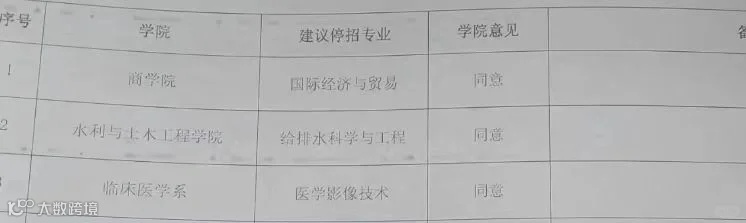 序号 学院 建议停招专业 学院意见 备
1 商学院 国际经济与贸易 同意
2 水利与土木工程学院 给排水科学与工程 同意
3 临床医学系 医学影像技术 同意
大数跨境